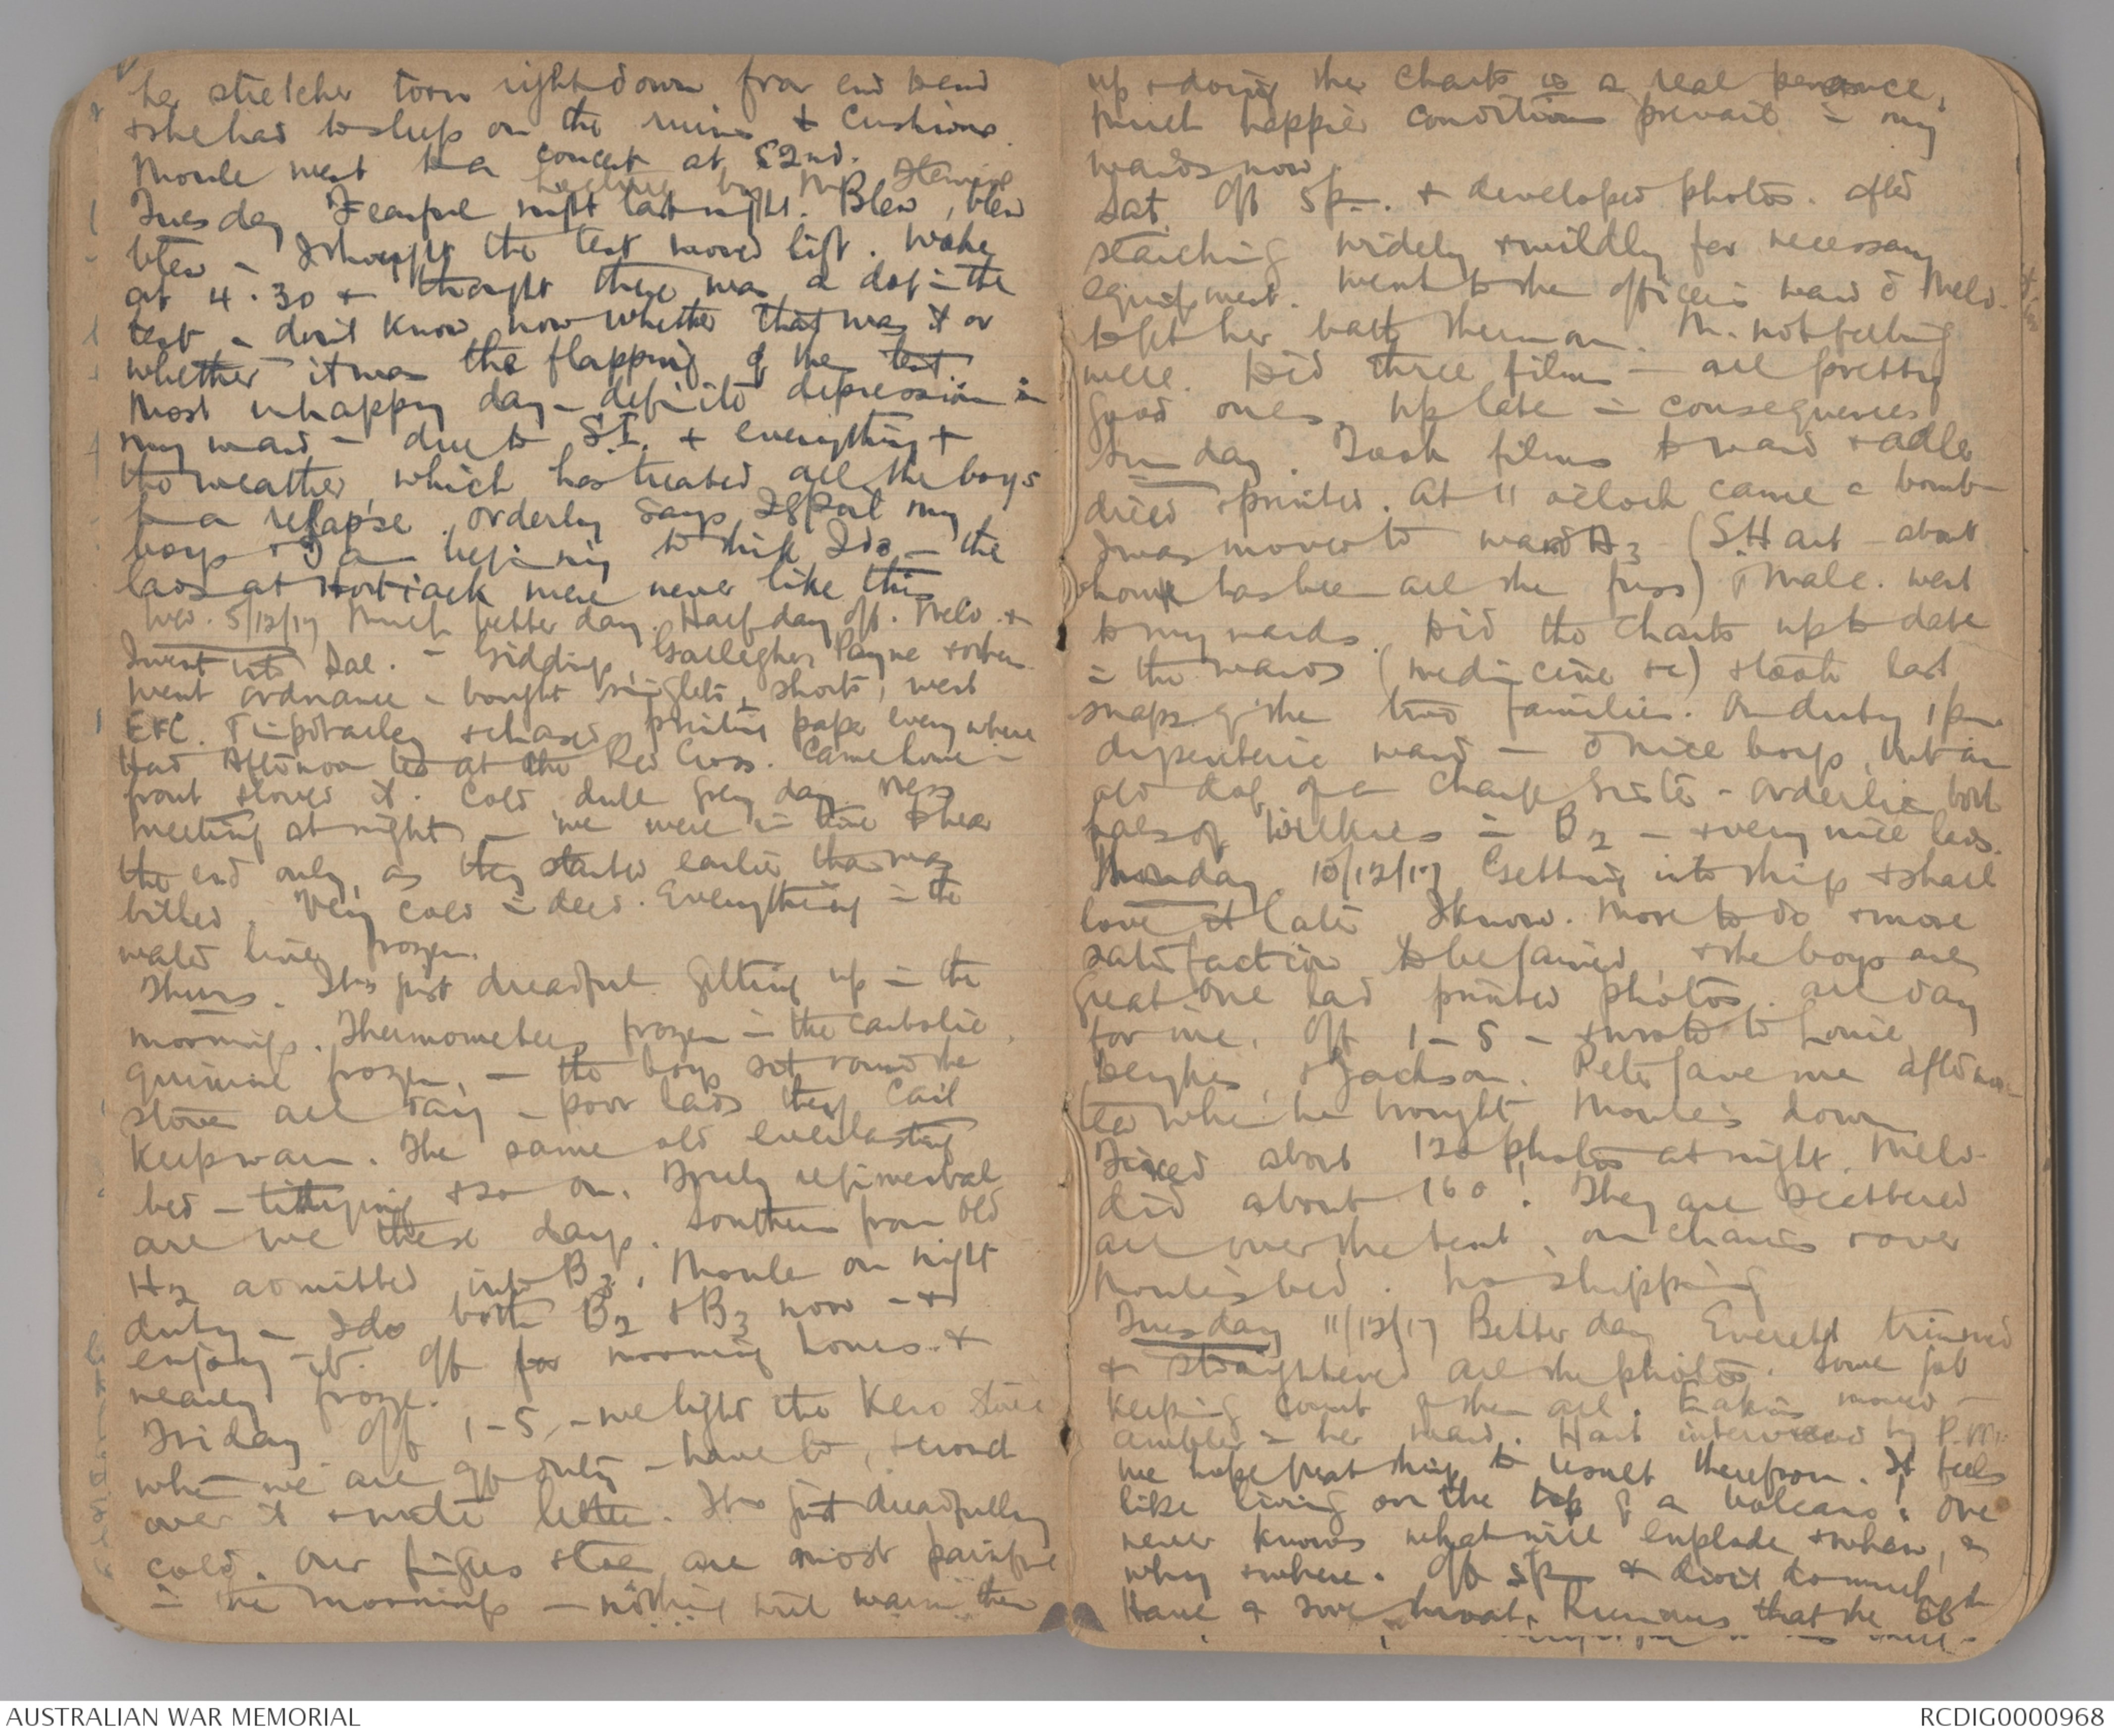 her stretcher torn right down from end to end
& she had to sleep on the ruins & cushions.
Moule went to a concert at 52nd.
Lecture by Mr
Tuesday Fearful night last night. Blew, blew
blew – I thought the tent would lift. Woke
at 4.30 & thought there was a dog in the
tent – don't know now whether that was it or
whether it was the flapping of the tent.
Most unhappy day – definite depression in
my ward – due to S.I. & everything &
the weather, which has treated all the boys
to a relapse. Orderly says I spoil my
boys & I am beginning to think I do – the
lads at Hortiack were never like this
Wed. 5/12/17 Much better day. Half day off. Meld. &
I went into Sal. – Giddings, Gallagher, Payne &
went ordnance – bought singlets, shorts, went
E.F.C. & chased printing paper everywhere
Had Afternoon tea at the Red Cross. Came home in
front & loved it. Cold, dull grey day. Mess
meeting at night – we were in time to hear
the end only, as they started earlier than was
billed. Very cold indeed. Everything in the
water line frozen.
Thurs. It is just dreadful getting up in the
mornings. Thermometers frozen in the carbolic,
quinine frozen, – the boys sit round the
stove all day – poor lads they can't
keep warm. The same old everlasting
bed – tidying & so on. Truly regimental
are we these days. Southern from old
H2 admitted into B3. Moule on night
duty – I do both B2 & B3 now – &
enjoy it. Off for morning hours &
nearly froze.
Friday Off 1–5, – we light the Kero stove
when we are off duty – have to, & crouch
over it & write letters. It is just dreadfully
cold. Our fingers & toes are most painful
in the mornings – nothing will warm them
up & doing the charts is a real penance.
Much happier conditions prevail in my
wards now.
Sat. Off 5 p.m. & developed photos. after
searching widely & wildly for necessary
equipment. Went to the officers ward c Meld.
to get her bath thermom. M. not feeling
well. Did three films – all pretty
good ones. Up late in consequence
Sunday. Took films to ward & Adler
dried & printed. At 11 o'clock came a bomb –
I was moved to ward A3 (S. Hart – about
whom has been all the fuss)
to my wards. Did the charts up to date
in the wards (medicine &c) & took last
snaps of the two families. On duty 1 pm
dysenteric ward – c nice boys, but an
old dog of a charge sister – orderlies both
pals of Wilkies in B2 – & very nice lads.
Monday 10/12/17 Getting into things & shall
love it later I know. More to do & more
satisfaction to be gained, & the boys are
great. One lad printed photos all day
for me. Off 1–5 – & wrote to Louie,
& Jackson. Pete gave me afternoon
tea when he brought Moule's down
Fixed about 120 photos at night. Meld.
did about 160! They are scattered
all over the tent, on chairs & over
Moule's bed. No shipping
Tuesday 11/12/17 Better day Everett trimmed
& straightened all the photos. Some job
keeping count of them all. Eakins moved –
in her ward. Hart interviewed by P.M.
we hope great things to result therefrom. It feels
like living on the top of a volcano: one
never knows what will explode & when, or
why & where. Off 5 pm & didn't do much
Have a sore throat. Rumours that the